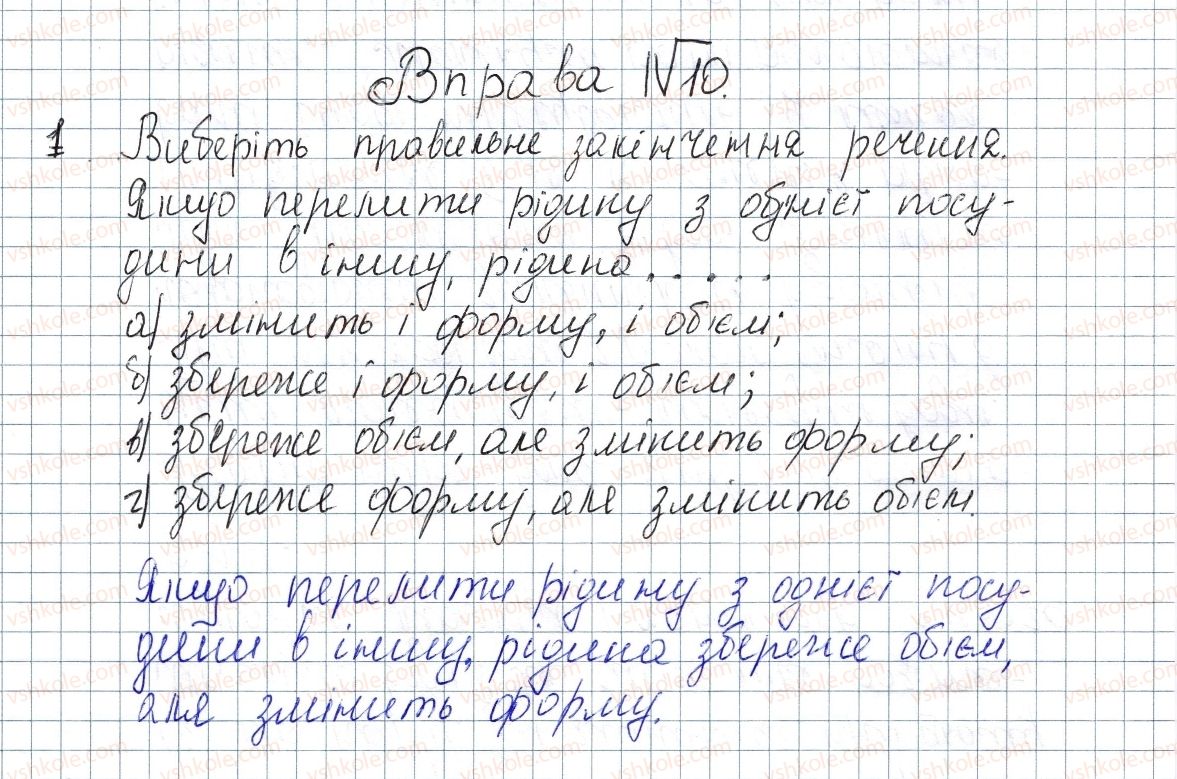 Вправа №10.
1. Виберіть правильне закінчення речення.
Якщо перелити рідину з однієї посу-
дини в іншу, рідина.....
а) змінить і форму, і об'єм;
б) збереже і форму, і об'єм;
в) збереже об'єм, але змінить форму;
г) збереже форму, але змінить об'єм.
Якщо перелити рідину з однієї посу-
дини в іншу, рідина збереже об'єм,
але змінить форму.